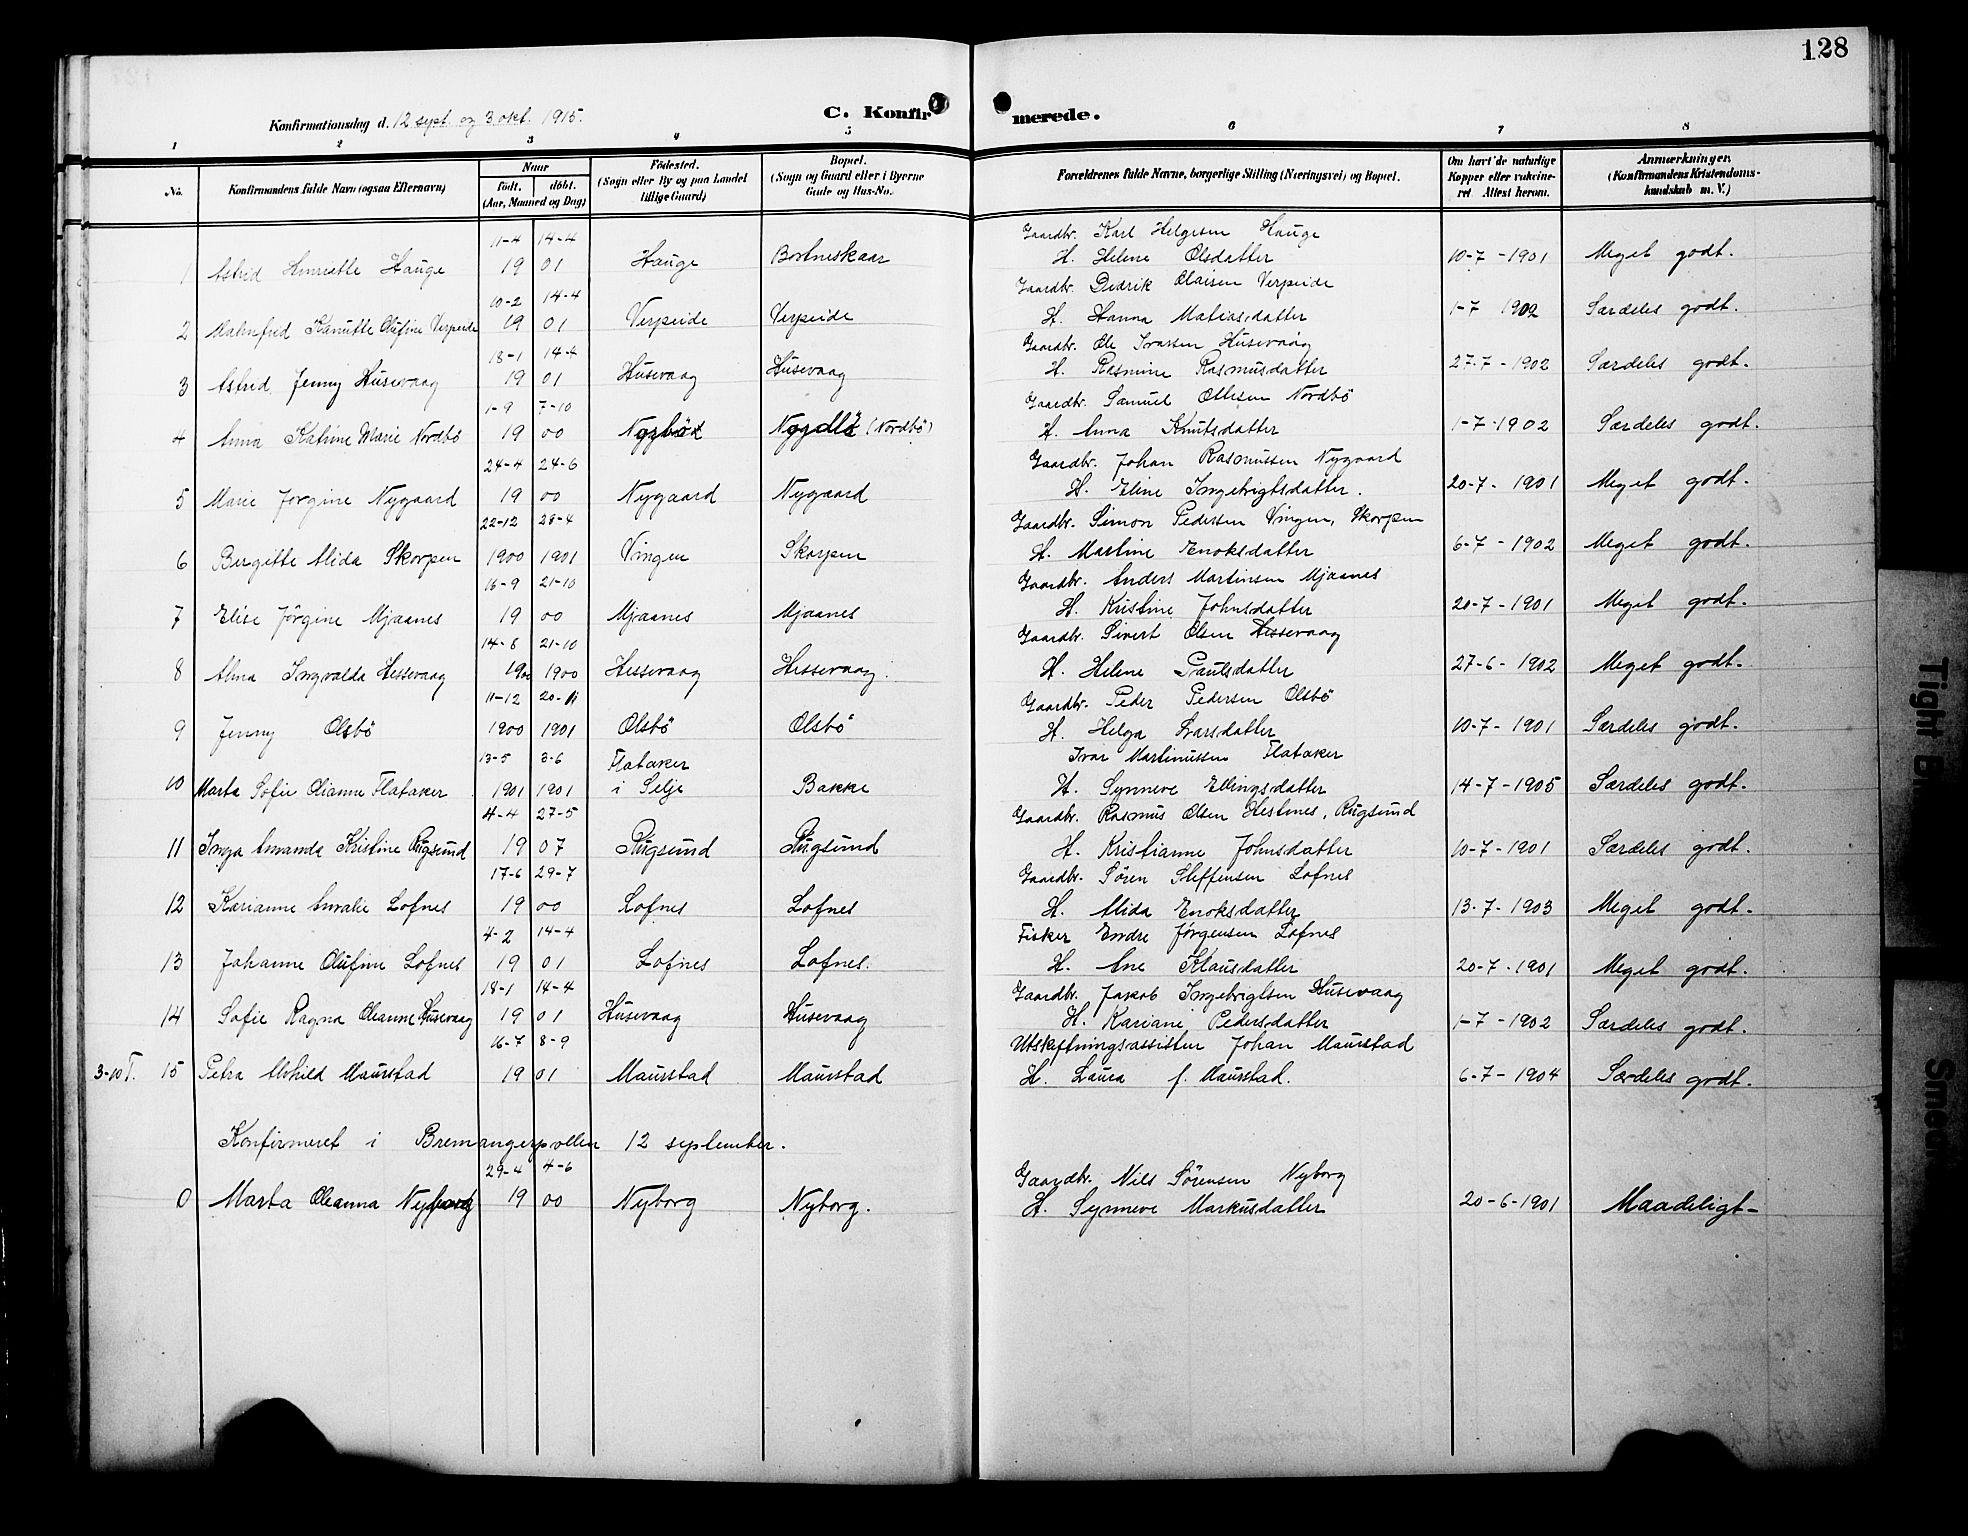 128
Konfirmationsdag d. 12 sept. og 3 okt. 1915.
C. Konfirmerede.
1 2 3 4 5 6 7 8
No. Konfirmandens fulde Navn (ogsaa Efternavn) Naar født. døbt. (Aar, Maaned og Dag) Fødested. (Sogn eller By og paa Landet tillige Gaard) Bopæl. (Sogn og Gaard eller i Byerne Gade og Hus-No. Forældrenes fulde Navne, borgerlige Stilling (Næringsvei) og Bopæl. Om havt de naturlige Kopper eller vakcineret Attest herom. Anmærkninger. (Konfirmandens Kristendomskundskab m. V.)
11-4 14-4 Gaardbr. Karl Helgesen Hauge
1 Astrid Henriette Hauge 19 01 Hauge Bortneskaar H. Helene Olsdatter 10-7-1901 Meget godt.
10-2 14-4 Gaardbr. Didrik Olaisen Verpeide
2 Malmfrid Kanutte Olufine Verpeide 19 01 Verpeide Verpeide H. Hanna Matiasdatter 1-7 1902 Særdeles godt.
18-1 14-4 Gaardbr. Ole Ivarsen Husevaag
3 Astrid Jenny Husevaag 19 01 Husevaag Husevaag H. Rasmine Rasmusdatter 27-7-1902 Særdeles godt.
1-9 7-10 Gaardbr. Samuel Ottesen Nordbö
4 Anna Katrine Marie Nordbö 19 00 (Nordbö) H. Anna Knutsdatter 1-7-1902 Særdeles godt.
24-4 24-6 Gaardbr. Johan Rasmussen Nygaard
5 Marie Jorgine Nygaard 19 00 Nygaard Nygaard H. Eline Ingebrigtsdatter. 20-7-1901 Meget godt.
22-12 28-4 Gaardbr. Simon Pedersen Vingen, Skorpen
6 Bergitte Alida Skorpen 1900 1901 Vingen Skorpen H. Martine Enoksdatter 6-7-1902 Meget godt.
16-9 21-10 Gaardbr. Anders Martinsen Mjaanes
7 Elise Jörgine Mjaanes 19 00 Mjaanes Mjaanes H. Kristine Johnsdatter 20-7-1901 Meget godt.
14-8 21-10 Gaardbr. Sivert Olsen Hessevaag
8 Alma Ingvalda Hessevaag 1900 1900 Hessevaag Hessevaag. H. Helene Paulsdatter 27-6-1902 Meget godt.
11-12 20-11 Gaardbr. Peder Pedersen Olsbö
9 Jenny Olsbö 1900 1901 Olsbö Olsbö H. Helga Ivarsdatter 10-7-1901 Særdeles godt.
13-5 3-6 Flataker Ivar Martinussen Flataker
10 Marta Sofie Olianne Flataker 1901 1901 i Selje Bakke H. Synneve Ellingsdatter 14-7-1905 Særdeles godt.
4-4 27-5 Gaardbr. Rasmus Olsen Hestnes, Rugsund
11 Inga Amanda Kristine Rugsund 19 07 Rugsund Rugsund H. Kristianne Johnsdatter 10-7-1901 Særdeles godt.
17-6 29-7 Gaardbr. Sören Steffensen Lofnes
12 Karianne Amalie Lofnes 19 00 Lofnes Lofnes H. Alida Enoksdatter 13-7-1903 Meget godt.
4-2 14-4 Fisker Endre Jörgensen Lofnes
13 Johanne Olufine Lofnes 19 01 Lofnes Lofnes. H. Ane Klausdatter 20-7-1901 Meget godt.
18-1 14-4 Gaardbr. Jakob Ingebrigtsen Husevaag
14 Sofie Ragna Oleanne Husevaag 19 01 Husevaag Husevaag H. Kariane Pedersdatter 1-7-1902 Særdeles godt.
16-7 8-9 Utskiftningsassisten Johan Maurstad
3-10 T. 15 Petra Alvhild Maurstad 19 01 Maurstad Maurstad H. Laura f. Maurstad. 6-7-1904 Særdeles godt.
Konfirmeret i Bremangerpollen 12 september.
29-4 4-6 Gaardbr. Nils Sörensen Nyborg
0 Marta Oleanna Nyborg 19 00 Nyborg Nyborg. H. Synneve Markusdatter 20-6-1901 Maadeligt-
Tight